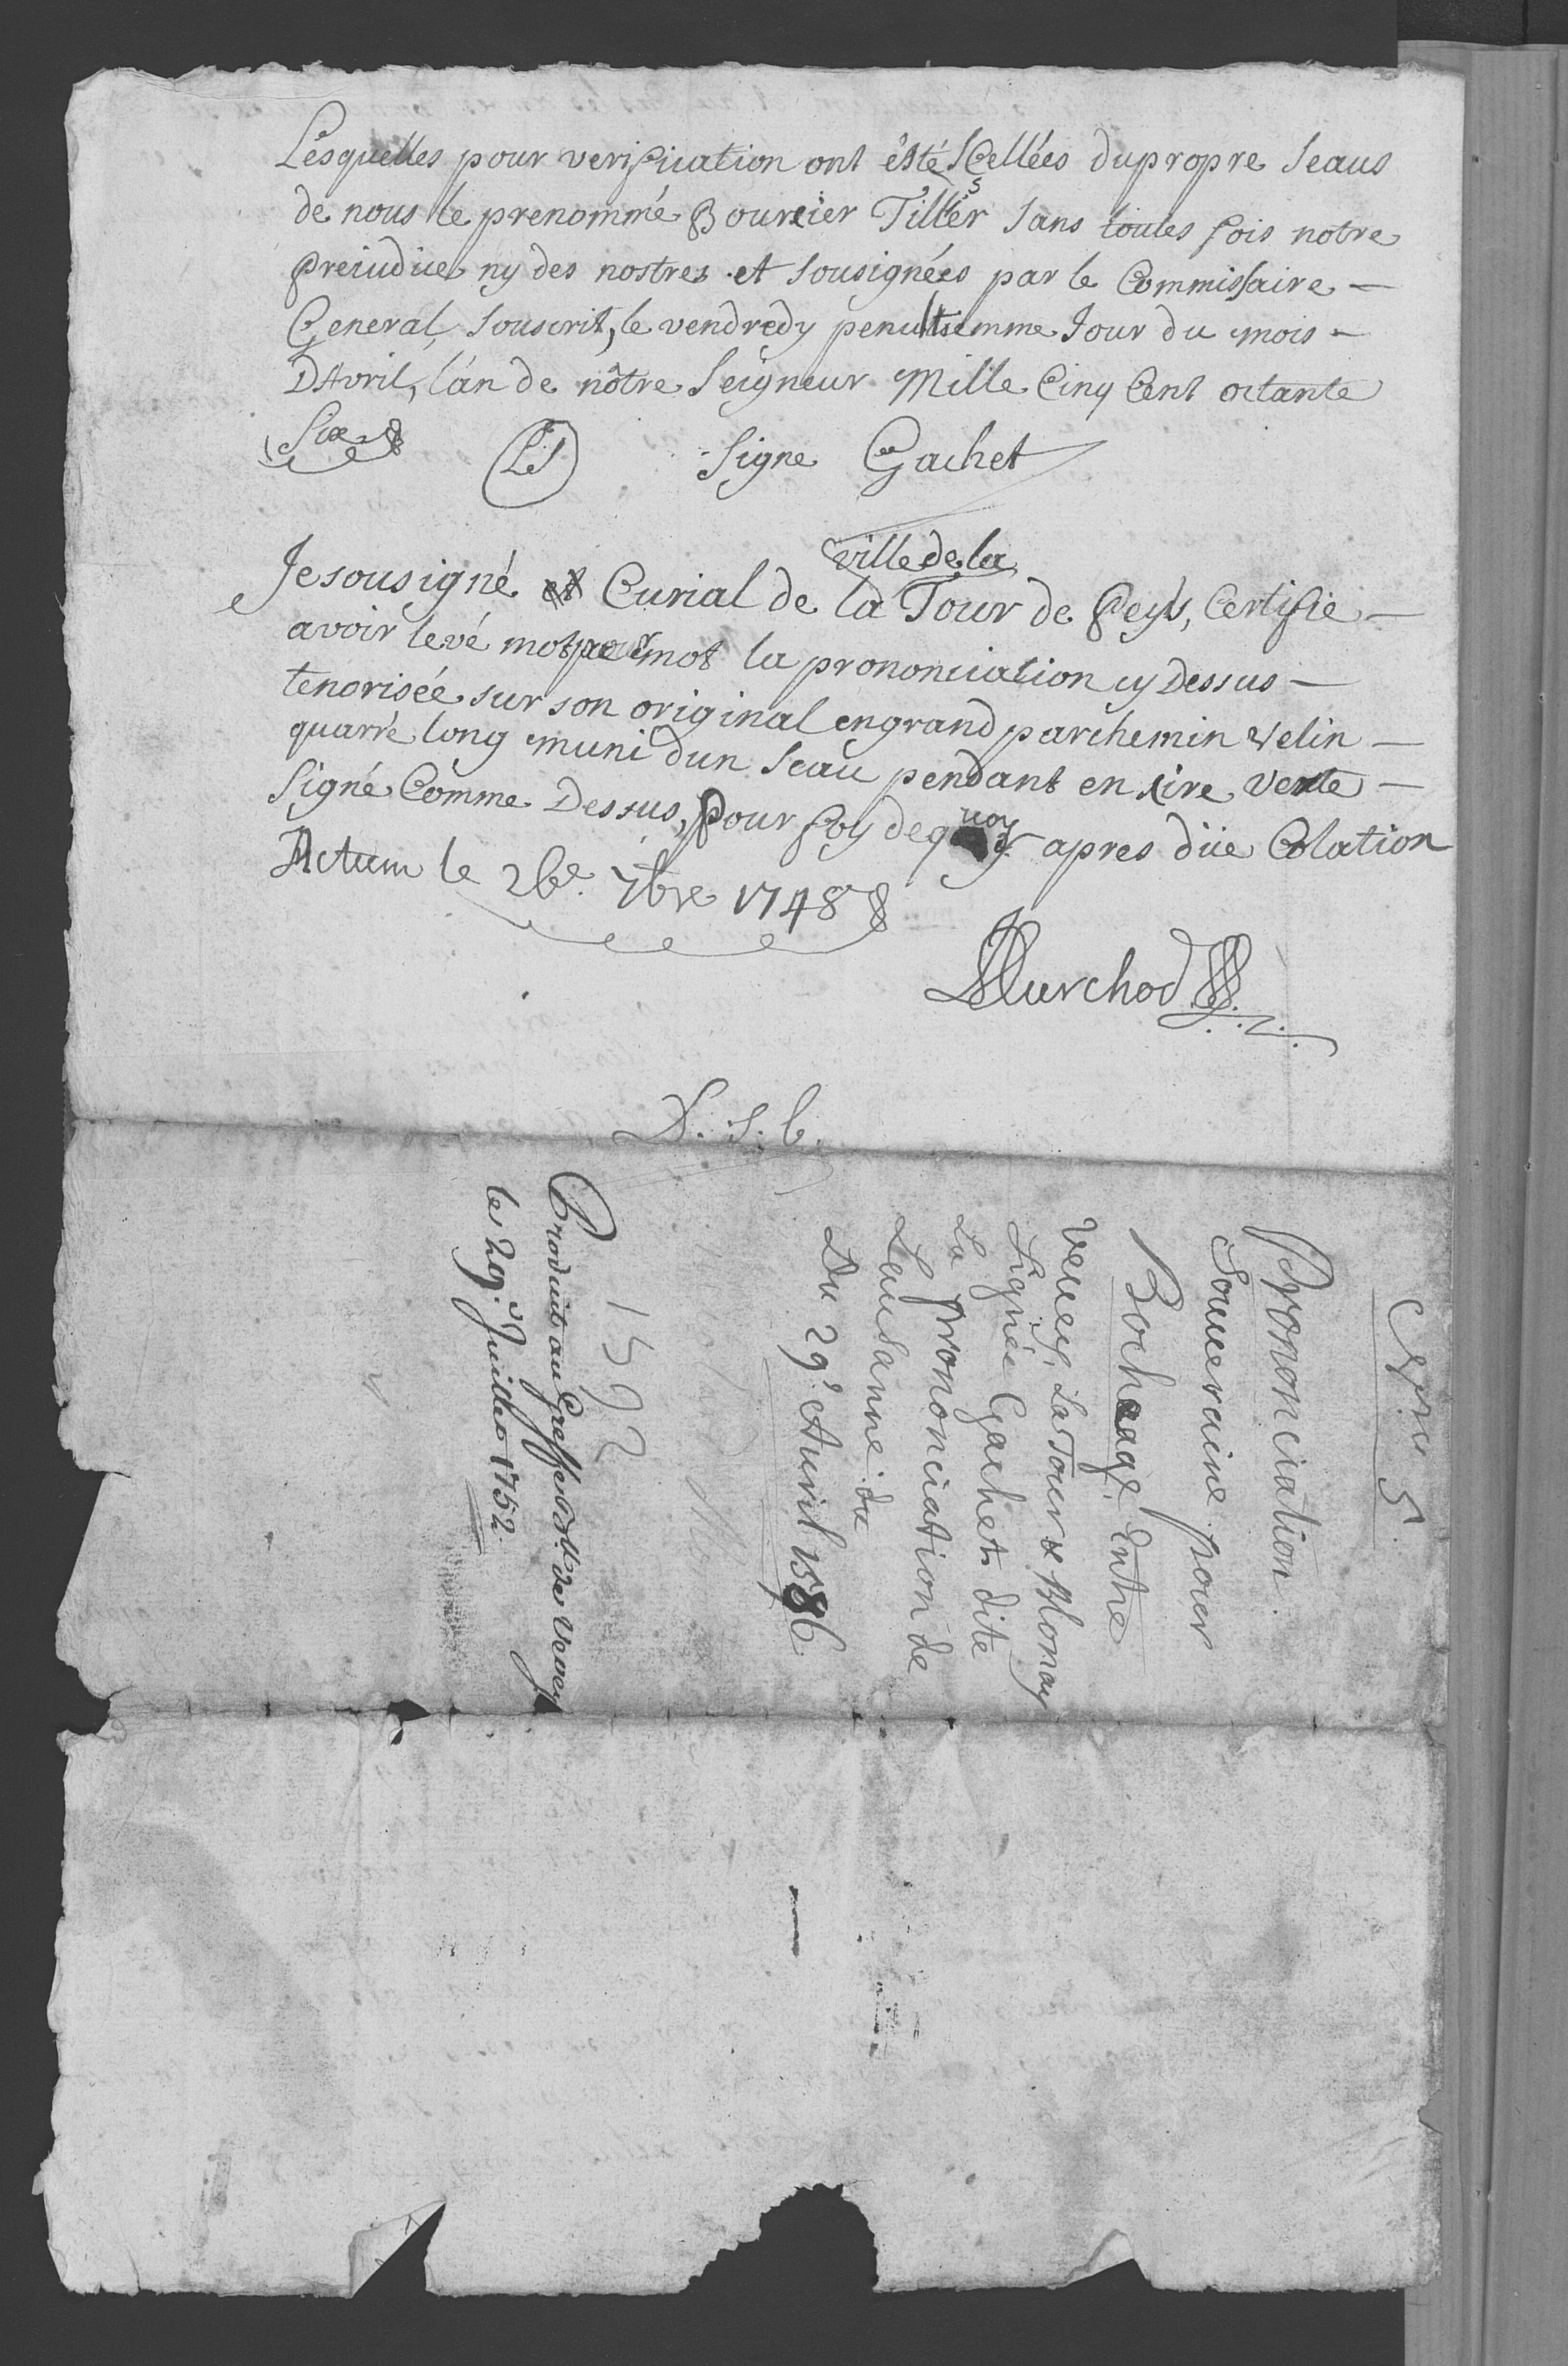 Lesquelles pour verification ont êsté scellées du propre seaus
de nous le prenommé Boursier Tiller sans toutes fois notre
preiudice ny des nostres et sousignées par le Commissaire —
General, souscrit, le vendredy penultiemme Jour du mois —
DAvril, l'an de nôtre Seigneur Mille Cinq Cent octante
Six
LS signe Gachet
ville de la
Je sousigné Curial de la Tour de Peyls, Certifie —
avoir levé mot pour mot la prononciation cy Dessus —
tenorisée sur son original en grand parchemin velin —
quarré long muni d'un seau pendant en cire verte —
signé Comme Dessus, pour foy de quoy apres düe Colation
Actum le 26e. 7bre 1748
Curchod
N. S. 6.
Nro 5
Prononciation
Souveraine pour
Bochéage Entre
Vevey, La Tour & Blonay
Signée Gachet dite
La prononciation de
Lausanne du
Du 29e Avril 1586
1592
Produit au Greffe Bll. de Vevey
le 29e. Juillet 1752.